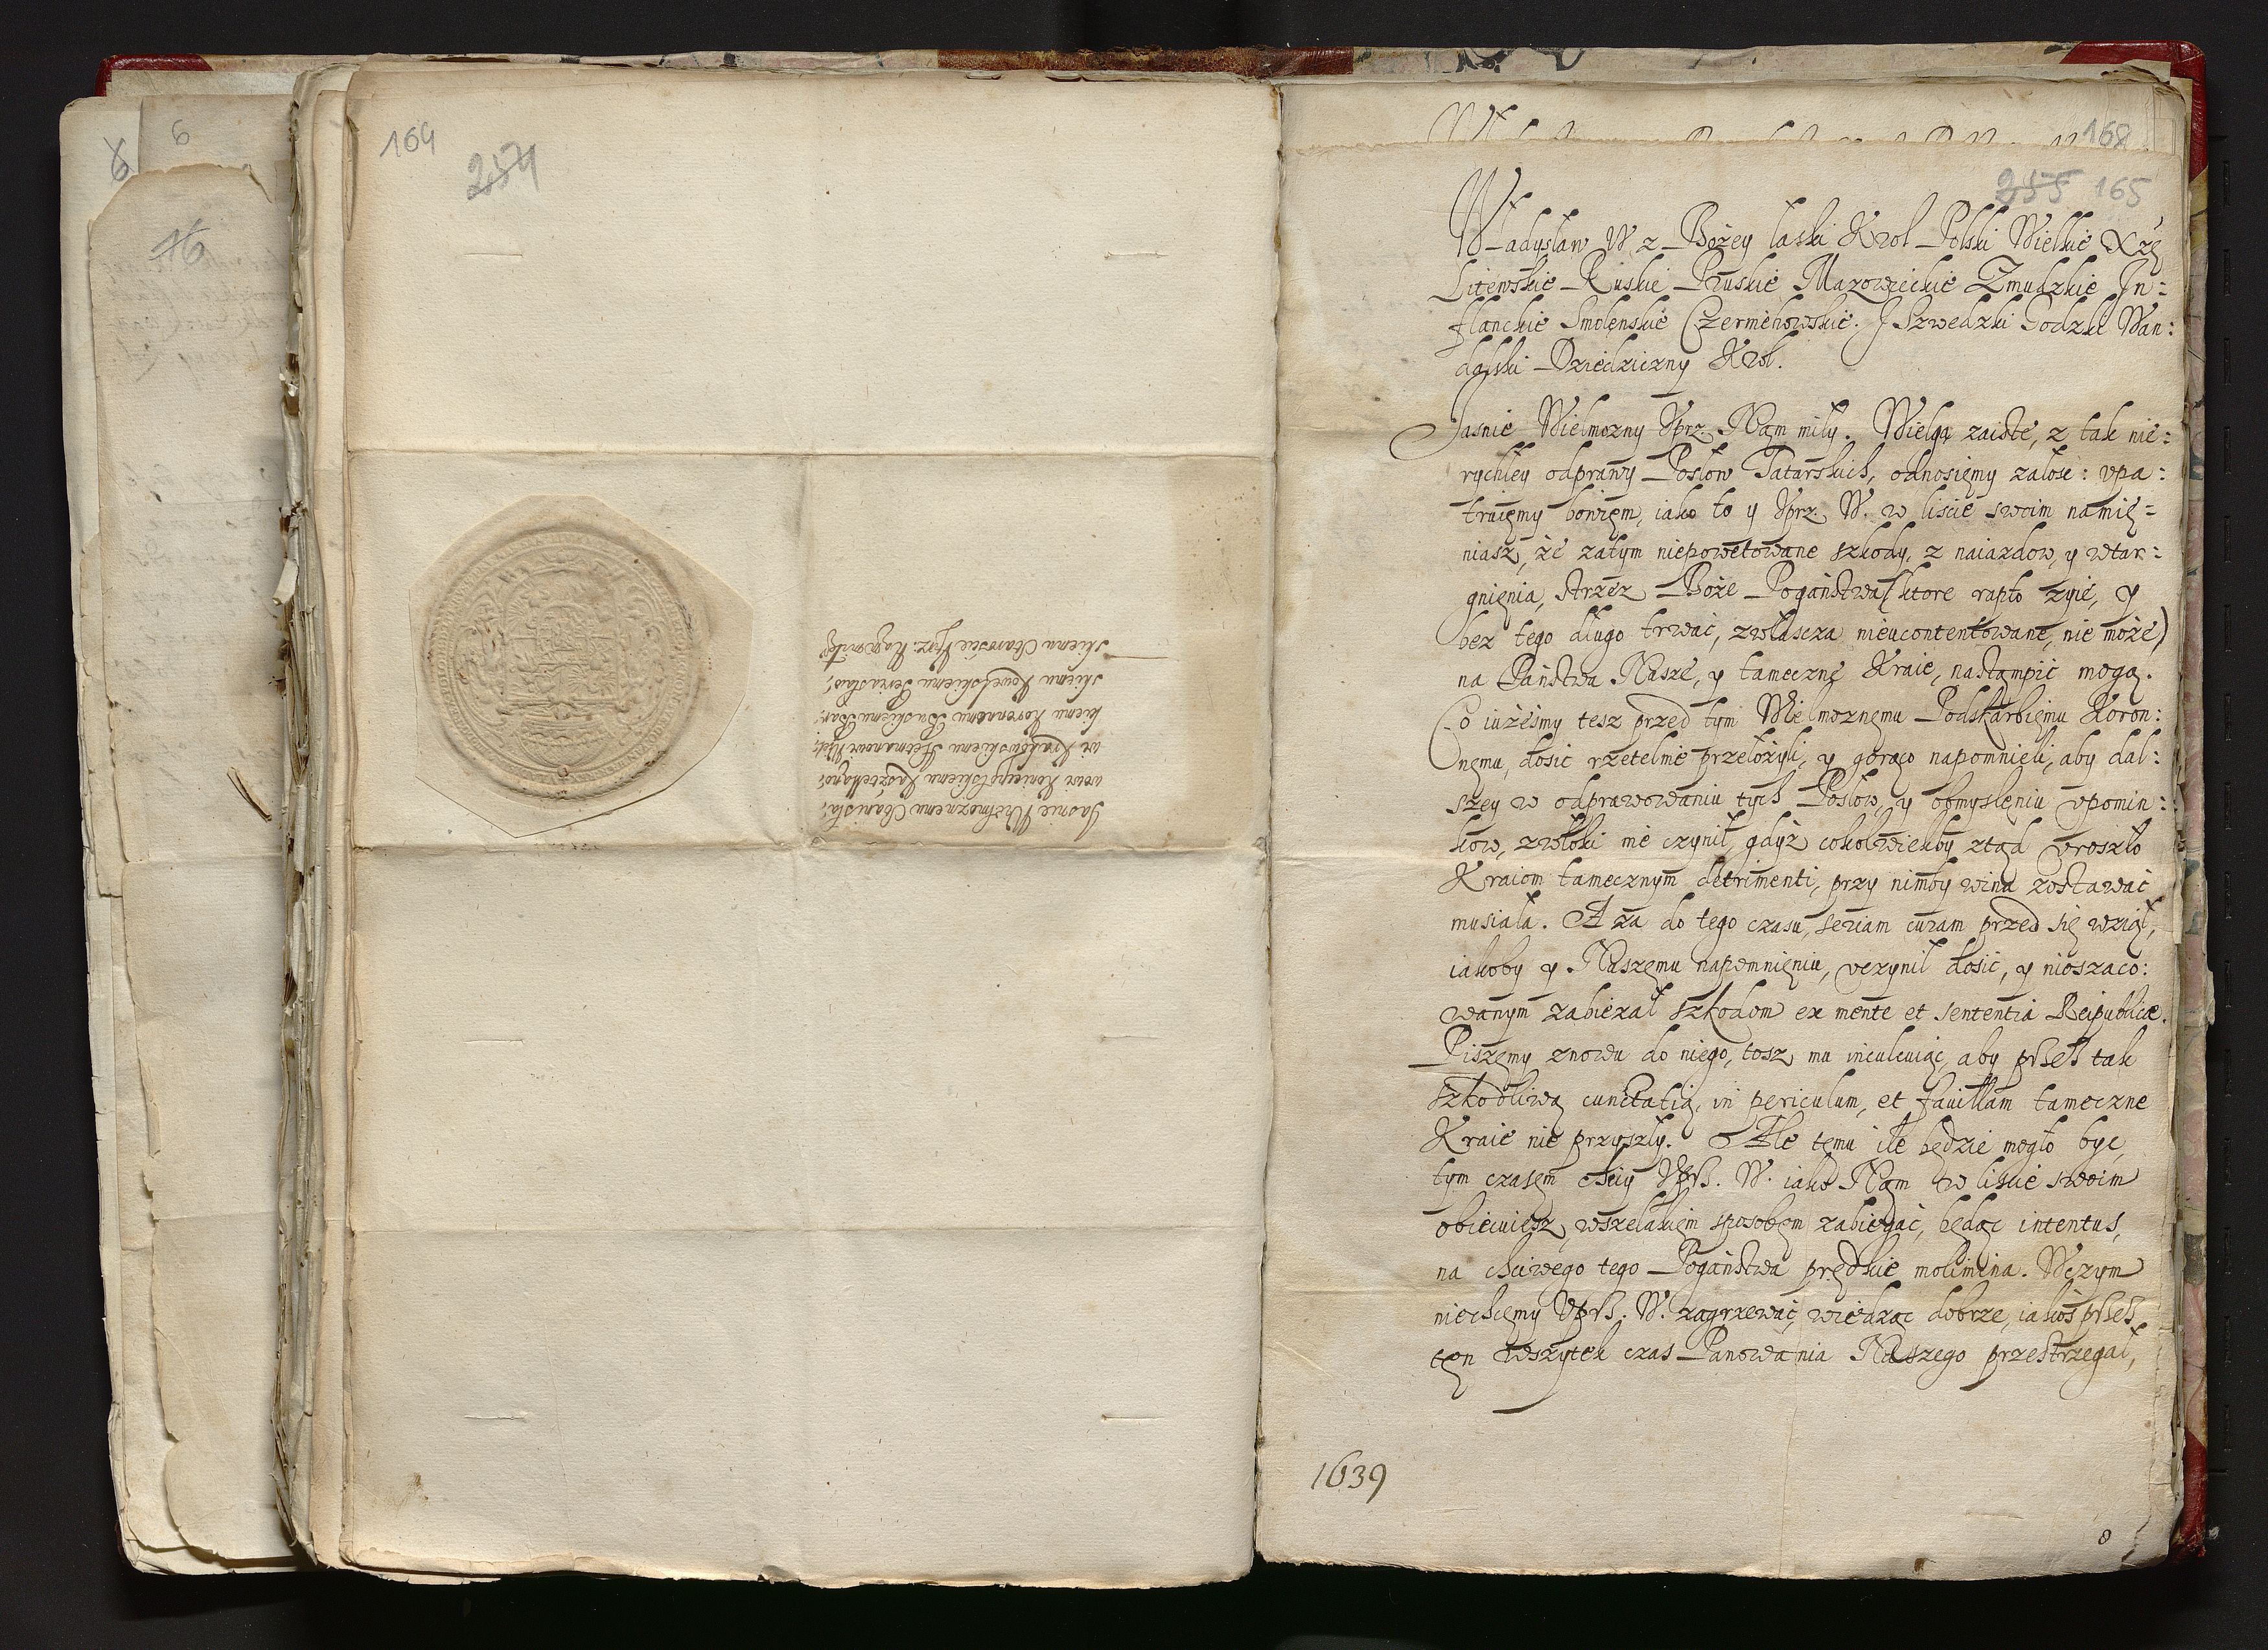 6
6
16
164
254
Jaśnie Wielmoznemu Stanisła:
wowi Koniecpolskiemu Kasztellano:
wi Krakowskiemu Hetmanowi Wiel:
kiemu Koronnemu Buskiemu Bar:
skiemu Kowelskiemu Pereiasław:
skiemu Staroscie Vprz:
168
255 165
Władysław IV z Bożey łaski Krol Polski Wielkie Xżę
Litewskie Ruskie Pruskie Mazowieckie Zmudzkie In:
flanckie Smolenskie Czerniehowskie. J Szwedzki Godzki Wan:
dalski Dziedziczny Krol.
Jasnie Wielmozny Vprz. Nąm miły. Wielgą zaiste, z tak nie:
rychłey odprawy Posłow Tatarskich, odnosięmy załość: vpa:
truięmy bowięm, iako to y Vprz. W. w liście swoim namię=
niasz, że zatym niepowetowane szkody, z naiazdow, y wtar:
gnięnia, strzez Boże Pogaństwa (ktore rapto zyie, y
bez tego długo trwać, zwłascza nieucontentowane, nie może)
na Państwa Nasze, y tameczne Kraie, nastąmpić mogą.
Co iużesmy tesz przed tym Wielmoznęmu Podskarbięmu Koron:
nęmu, dosić rzetelnie przełożyli, y gorąco napomnięli, aby dal:
szey w odprawowaniu tych Posłow, y obmyslęniu vpomin:
kow, zwłoki nie czynił, gdyż cokolwiekby ztąd vroszło
Kraiom tamecznym detrimenti, przy nimby wina zostawać
musiała. A za do tego czasu, seriam curam przed się wziął,
iakoby y Naszęmu napomnięniu, vczynił dosić, y nioszaco:
wanym zabieżał szkodom ex mente et sententiâ Reipublicæ.
Piszęmy znowu do niego, tosz mu inculcuiąc, aby przes tak
szkodliwą cunctatią, in periculum, et fauillam tameczne
Kraie nie przyszły. Ale tęmu ile będzie mogło być,
tym czasęm chciy Vprz. W. iako Nąm w liście swoim
obiecuiesz, wszelakięm sposobęm zabiegać, będąc intentus,
na chciwego tego Pogaństwa prędkie molimina. W czym
niechcęmy Vprz. W. zagrzewać, wiedząc dobrze, iakoś przes
tęn wszytek czas Panowania Naszego przestrzegał,
1639
8